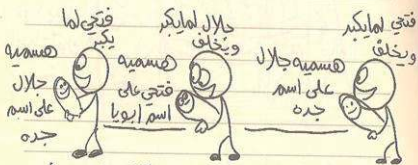 فتحي لما يكبر
ويخلف
هسميه جلال
على اسم
جده
جلال لما يكبر
ويخلف
هسميه
فتحي على
اسم ابويا
فتحي لما
يكبر
هسميه
جلال
على اسم
جده